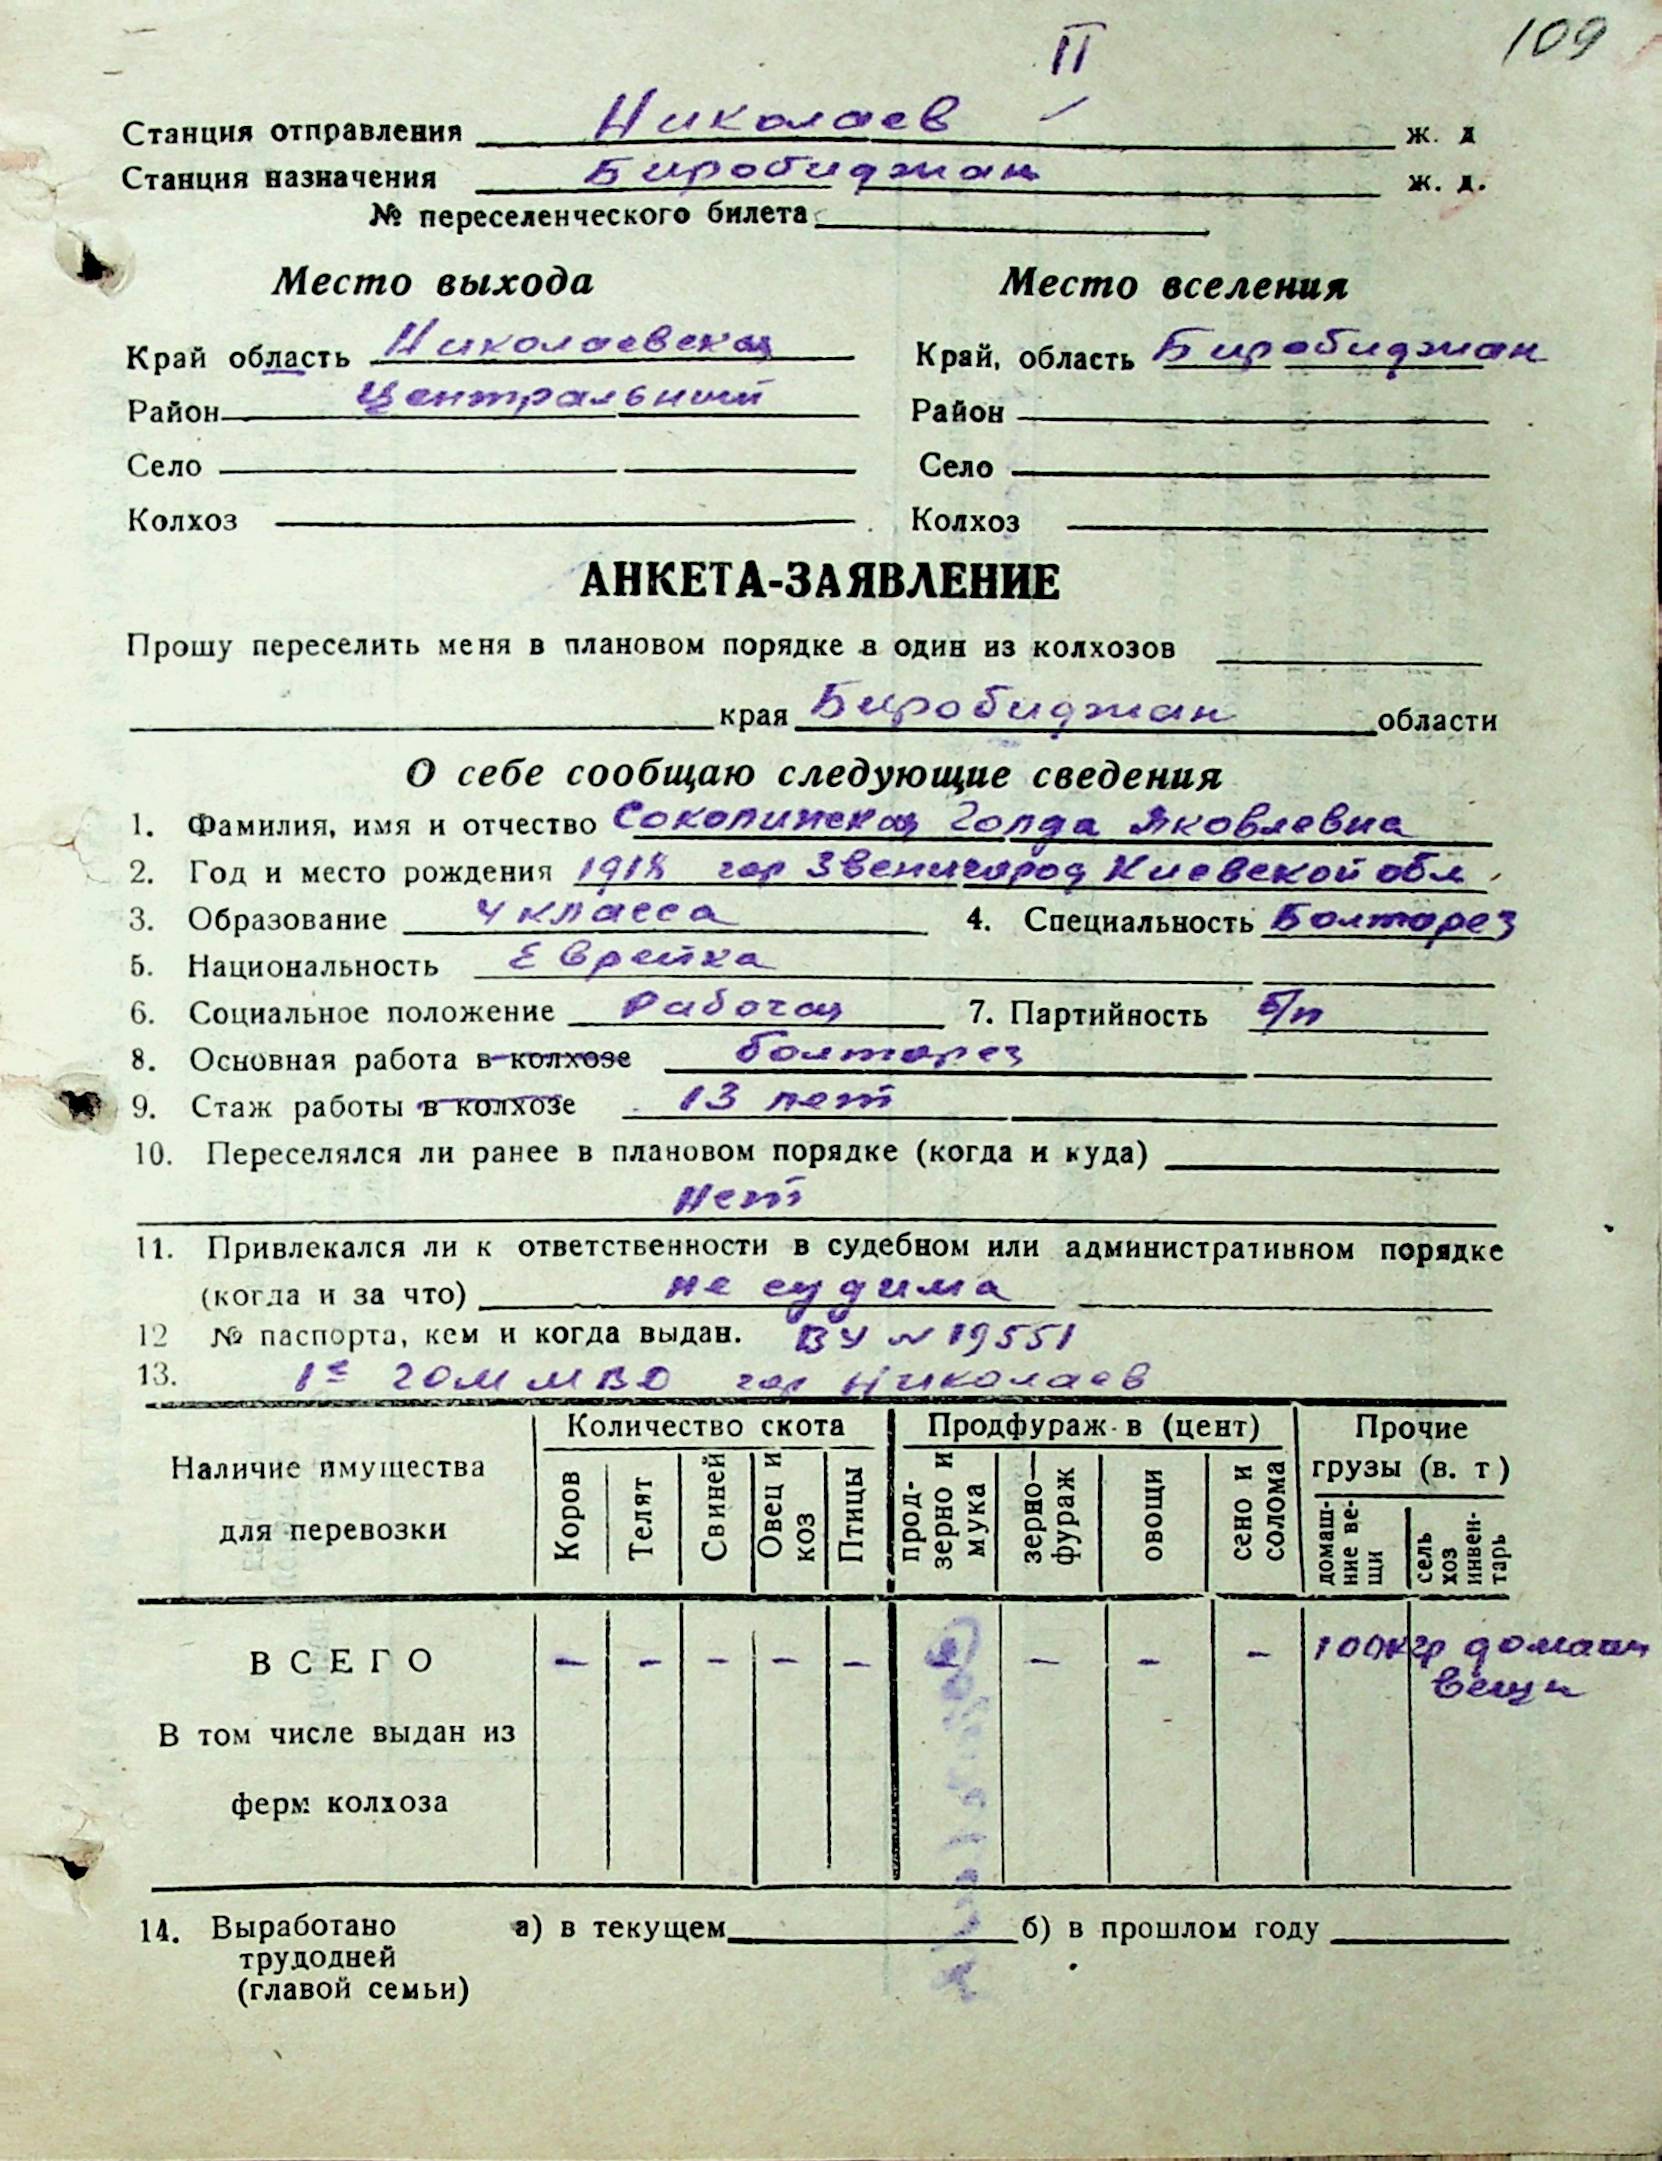 109
II
Станция отправления Николаев ж. д
Станция назначения Биробиджан ж. д.
№ переселенческого билета
Место выхода Место вселения
Край область Николаевская Край, область Биробиджан
Район Центральный Район
Село Село
Колхоз Колхоз
АНКЕТА-ЗАЯВЛЕНИЕ
Прошу переселить меня в плановом порядке в один из колхозов
края Биробиджан области
О себе сообщаю следующие сведения
1. Фамилия, имя и отчество Соколинская Голда Яковлевна
2. Год и место рождения 1918 гор Звенигород Киевской обл.
3. Образование 4 класса 4. Специальность Болторез
5. Национальность Еврейка
6. Социальное положение Рабочая 7. Партийность б/п
8. Основная работа в колхозе болторез
9. Стаж работы в колхозе 13 лет
10. Переселялся ли ранее в плановом порядке (когда и куда)
нет
11. Привлекался ли к ответственности в судебном или административном порядке
(когда и за что) не судима
12 № паспорта, кем и когда выдан. ВУ № 19551
13. 1е ГОМ МВД гор Николаев
Наличие имущества для перевозки
Количество скота Продфураж в (цент) Прочие грузы (в. т)
Коров Телят Свиней Овец и коз Птицы прод-зерно и мука зерно—фураж овощи сено и солома домаш-ние ве-щи сель хоз инвен-тарь
ВСЕГО – – – – – – – – – 100кгр домашн
вещи
В том числе выдан из
ферм колхоза
14. Выработано а) в текущем б) в прошлом году
трудодней
(главой семьи)